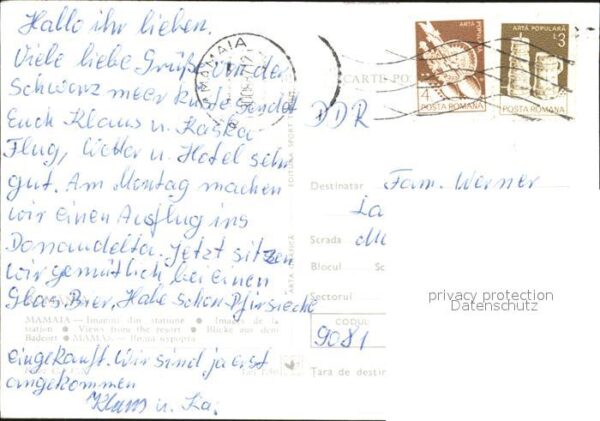 Hallo ihr lieben,
Viele liebe Grüße von der
Schwarzmeerküste sendet
Euch Klaus u. Kaska
Flug, Wetter u. Hotel sehr
gut. Am Montag machen
wir einen Ausflug ins
Donaudelta. Jetzt sitzen
wir gemütlich bei einen
Glas Bier, Habe schon Pfirsiche
MAMAIA — Imagini din stațiune • Images de la
station • Views from the resort • Blicke aus dem
Badeort • МАМАЯ — Виды курорта
eingekauft. Wir sind ja erst
angekommen
Klaus u. Ka.
MAMAIA
EDITURA SPORT
ARTA GRAFICĂ
CARTE PO
ARTĂ POPULARĂ
4
POSTA ROMANA
ARTĂ POPULARĂ
L3
POSTA ROMANA
DDR
Destinatar Fam. Werner
Strada
Blocul Sc
Sectorul
CODUL
9081
Țara de destin
privacy protection
Datenschutz